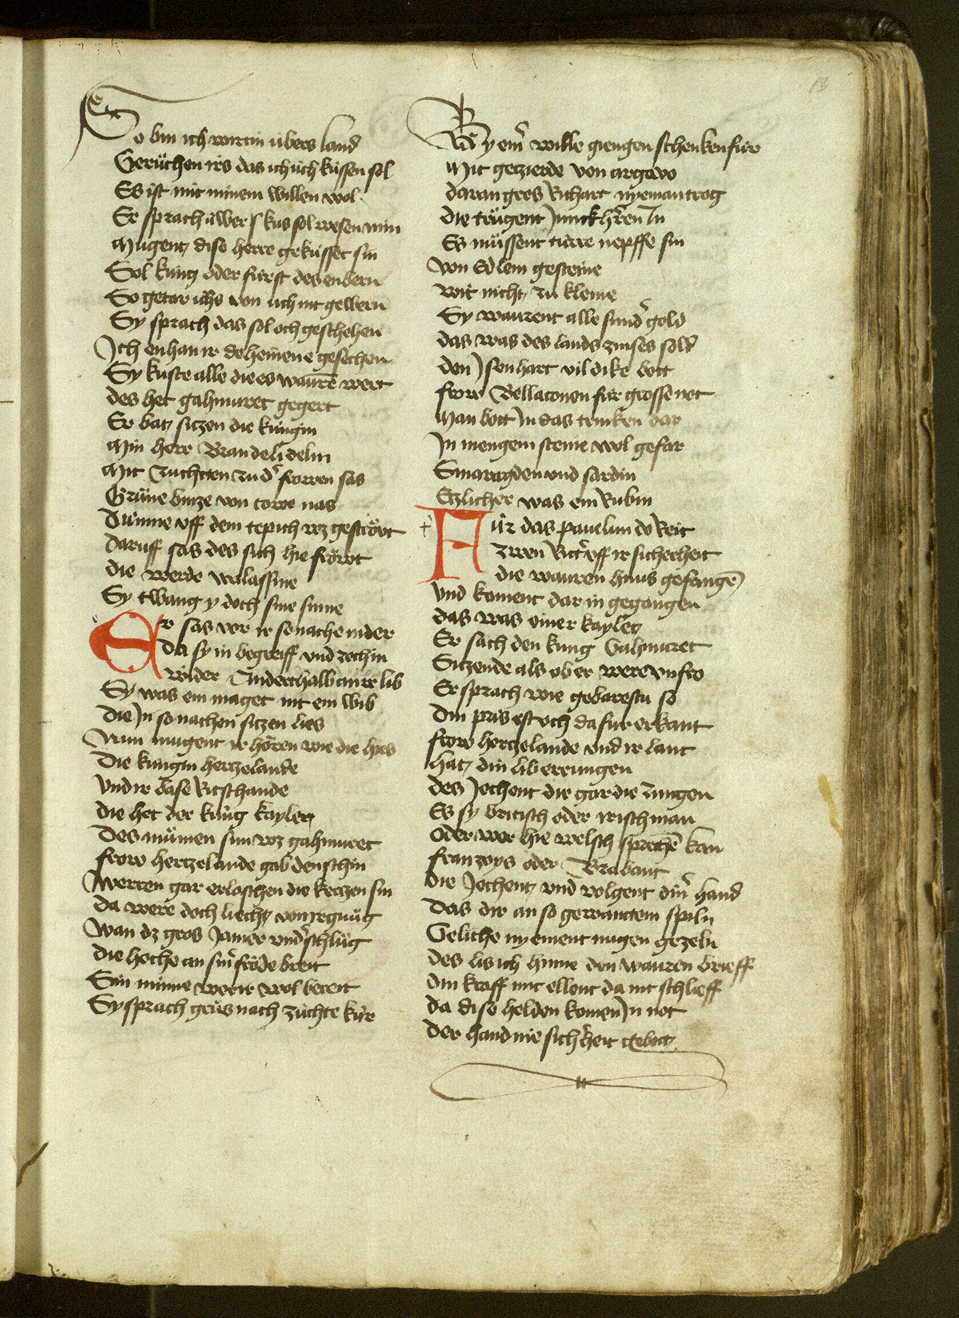 13
So bin ich wirtin úbers land
Gerůchen irs das ich úch kússen sol
Es ist mit minem willen wol
Er sprach úwer kus sol wesen min
Mugent dise herre gekússet sin
Sol kúng oder fúrst des enbern
So getar ichs von úch nit gellern
Sy sprach das sol och geschehen
Ich enhan ir deheinene gesechen
Sy kuste alle die es waurē wert
des het gahmuret gegert
Er bat sitzen die kúngin
Min herr Brandelidelin
Mit zuchten zu dˀ frowen sas
Grúne bincze von towe nas
Dúnne vff dem tepich wz geströwt
daruff sas des sich hie fröwt
die werde walassine
Sy twang y doch sine sinne
Er sas vor ir so nache nider
da sy in begreiff vnd zoch in
wider Anderthalb an ir lib
Sy was ein maget nit ein wib
die In so nachen sitzen lies
Nun mugent ir hören wie die hies
Die kúngin herczelaude
Vnd ir base Ritschaude
die het der kúng kaylet
Des můmen sun wz gahmuret
frow herczelaude gab den schin
Werren gar erloschen die keczen sin
da were doch liecht von ir gnůg
Wan dz gros Jamer vndˀ schlůg
die hoche an sinˀ fröde breit
Sin minne were ir wol bereit
Sy sprach grůs nach zúchte kúr
By einˀ wille giengen schenken fúr
Mit gezierde von azagovo
daran gros Richart nyeman trog
die trůgent Junckhˀren In
Es můssent túrre nepffe sin
von Edlem gesteine
wit nicht zu kleine
Sy waurent alle sundˀ gold
das was des lands zinses sold
den Isenhart vil dike bott
frow Bellaconen fúr grosse not
Man bott In das trinken dar
In mengem steine wol gefar
Smaragden vnd sardin
Etzlicher was ein Rubin
Fúr das pauelun do Reit
zwen Rittˀ vff ir sicherheit
die wauren hinus gefangē
vnd koment dar in gegangen
das was einer kaylet
Er sach den kúng Gahmuret
Sitzende als ob er were vnfro
Er sprach wie gebarestu so
din pris ist och da fúr erkant
frow herczelaude vnd ir lant
hat din lib errungen
des Jechent dir gar die zungen
Es sy britisch oder irisch man
Oder wer hie welsch sprechē kan
franzoys oder Brabant
die Jechent vnd volgent dinˀ hand
Das dir an so gewanctem spiln
Geliche nyement mugen gezeln
des lis ich hinne den wauren brieff
din kraff mit ellent da nit schlieff
da dise helden komen In not
der hand nie sichˀheit gebott